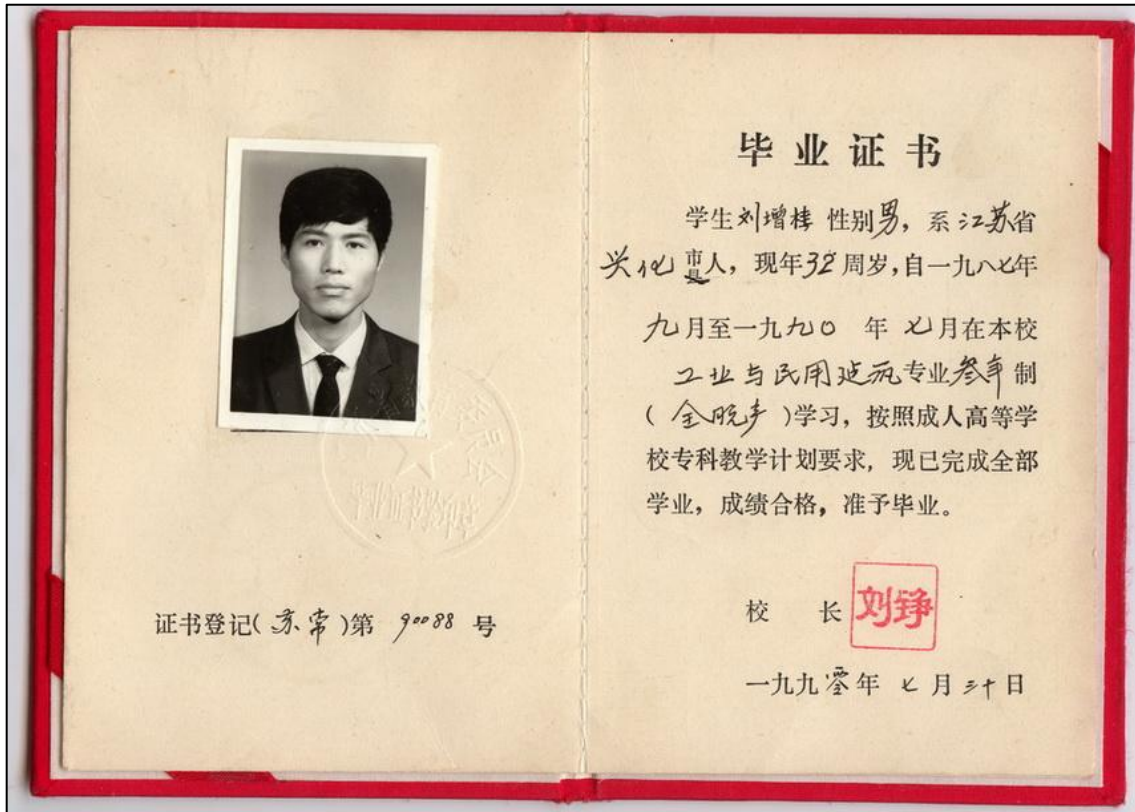 证书登记(苏常)第 90088 号
毕业证书
学生刘增桂 性别男，系江苏省
兴化市县人，现年32周岁，自一九八七年
九月至一九九〇 年 七月在本校
工业与民用建筑专业叁年制
(全脱产)学习，按照成人高等学
校专科教学计划要求，现已完成全部
学业，成绩合格，准予毕业。
校 长 刘铮
一九九零年 七月三十日